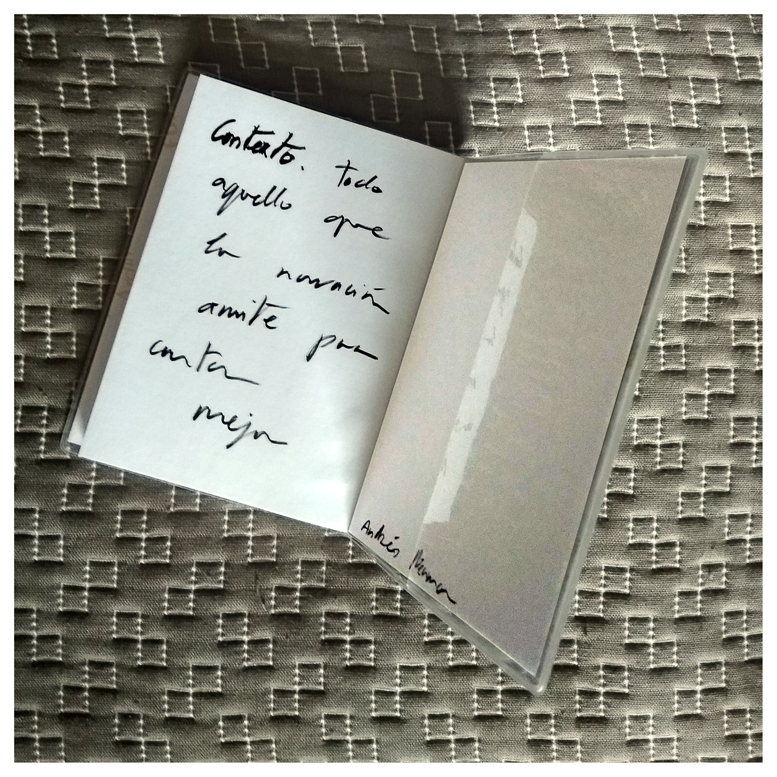 Contexto. todo
aquello que
la narración
omite para
contar
mejor
Andrés Neuman